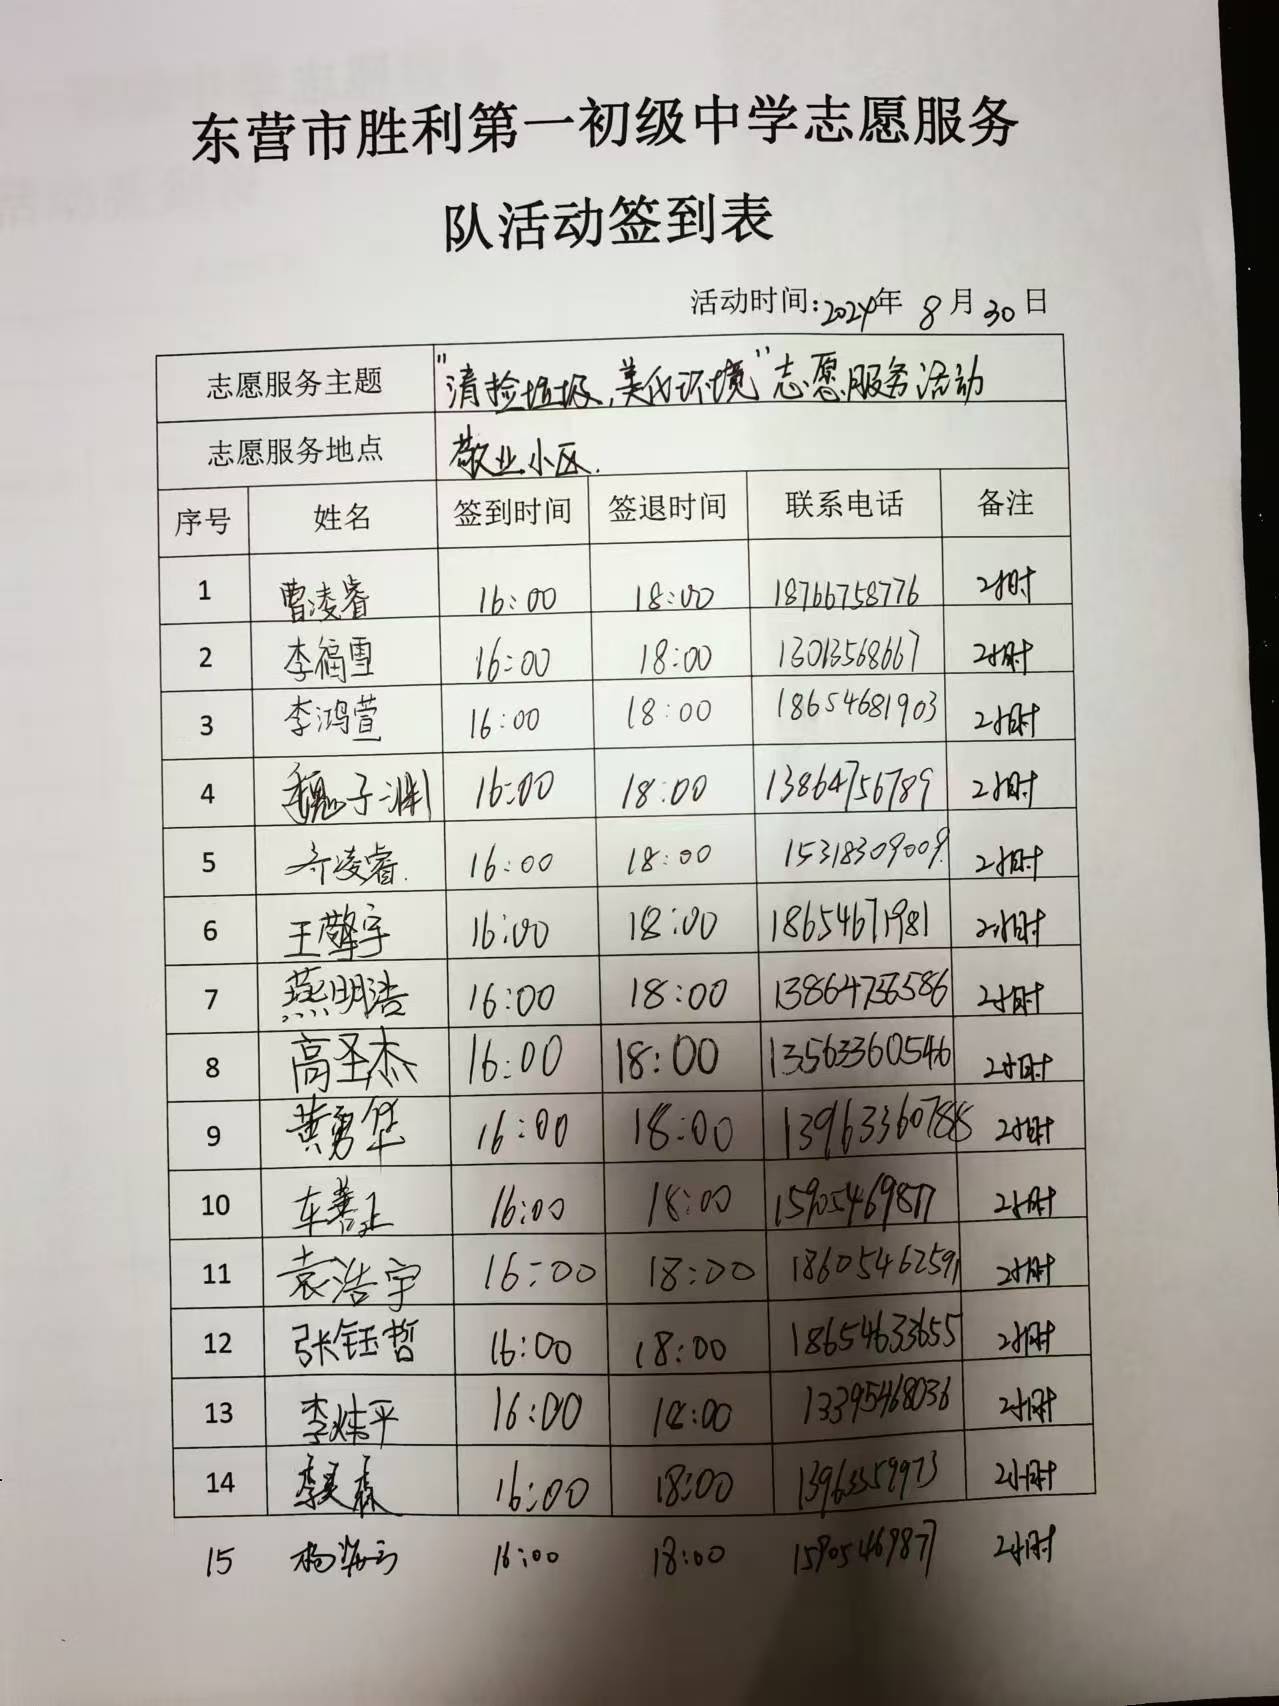 东营市胜利第一初级中学志愿服务
队活动签到表
活动时间:2024年 8月30日
志愿服务主题 "清捡垃圾,美化环境"志愿服务活动
志愿服务地点 敬业小区.
序号 姓名 签到时间 签退时间 联系电话 备注
1 曹凌睿 16:00 18:00 18766758776 2小时
2 李福雪 16:00 18:00 13013568667 2小时
3 李鸿萱 16:00 18:00 18654681903 2小时
4 魏子渊 16:00 18:00 13864756789 2小时
5 齐凌睿. 16:00 18:00 15318309009. 2小时
6 王擎宇 16:00 18:00 18654671981 2小时
7 燕明浩 16:00 18:00 13864736586 2小时
8 高圣杰 16:00 18:00 13563360546 2小时
9 黄勇华 16:00 18:00 2小时
10 车善正 16:00 18:00 15905469877 2小时
11 袁浩宇 16:00 18:00 18605462591 2小时
12 张钰哲 16:00 18:00 18654633655 2小时
13 李炜平 16:00 18:00 13395468036 2小时
14 16:00 18:00 13963359973 2小时
15 16:00 18:00 15905469877 2小时